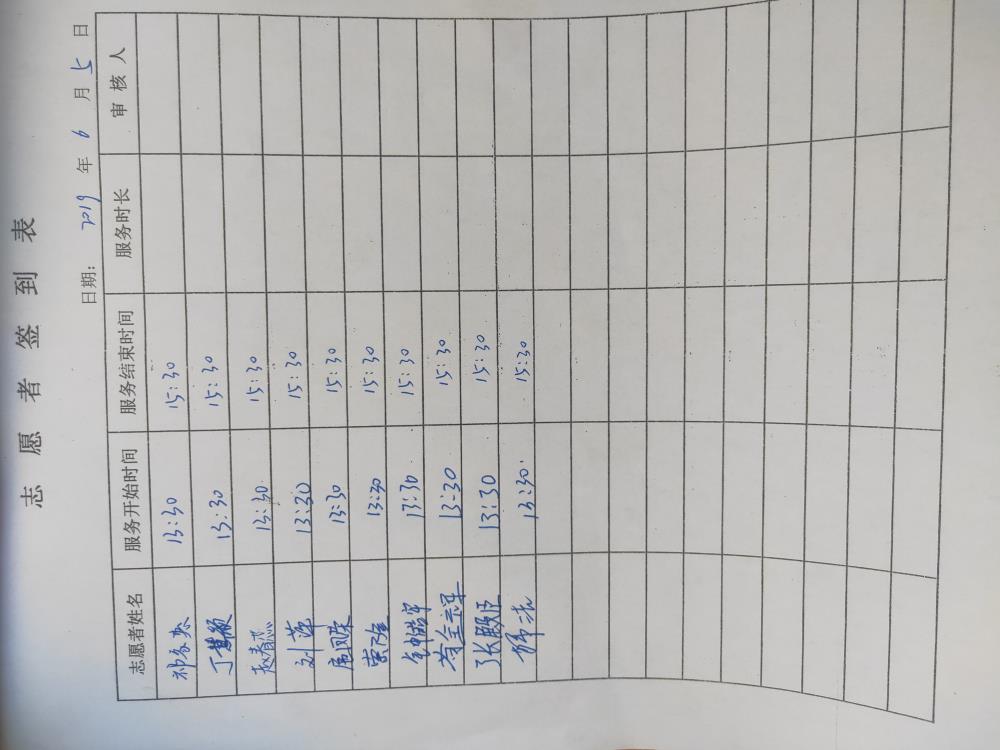 志愿者签到表
日期： 2019 年 6 月 5 日
志愿者姓名 服务开始时间 服务结束时间 服务时长 审核人
13:30 15:30
丁慧颖 13:30 15:30
赵春燕 13:30 15:30
刘萍 13:30 15:30
13:30 15:30
13:30 15:30
13:30 15:30
13:30 15:30
13:30 15:30
13:30 15:30